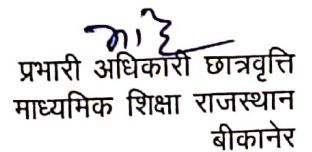 प्रभारी अधिकारी छात्रवृत्ति
माध्यमिक शिक्षा राजस्थान
बीकानेर